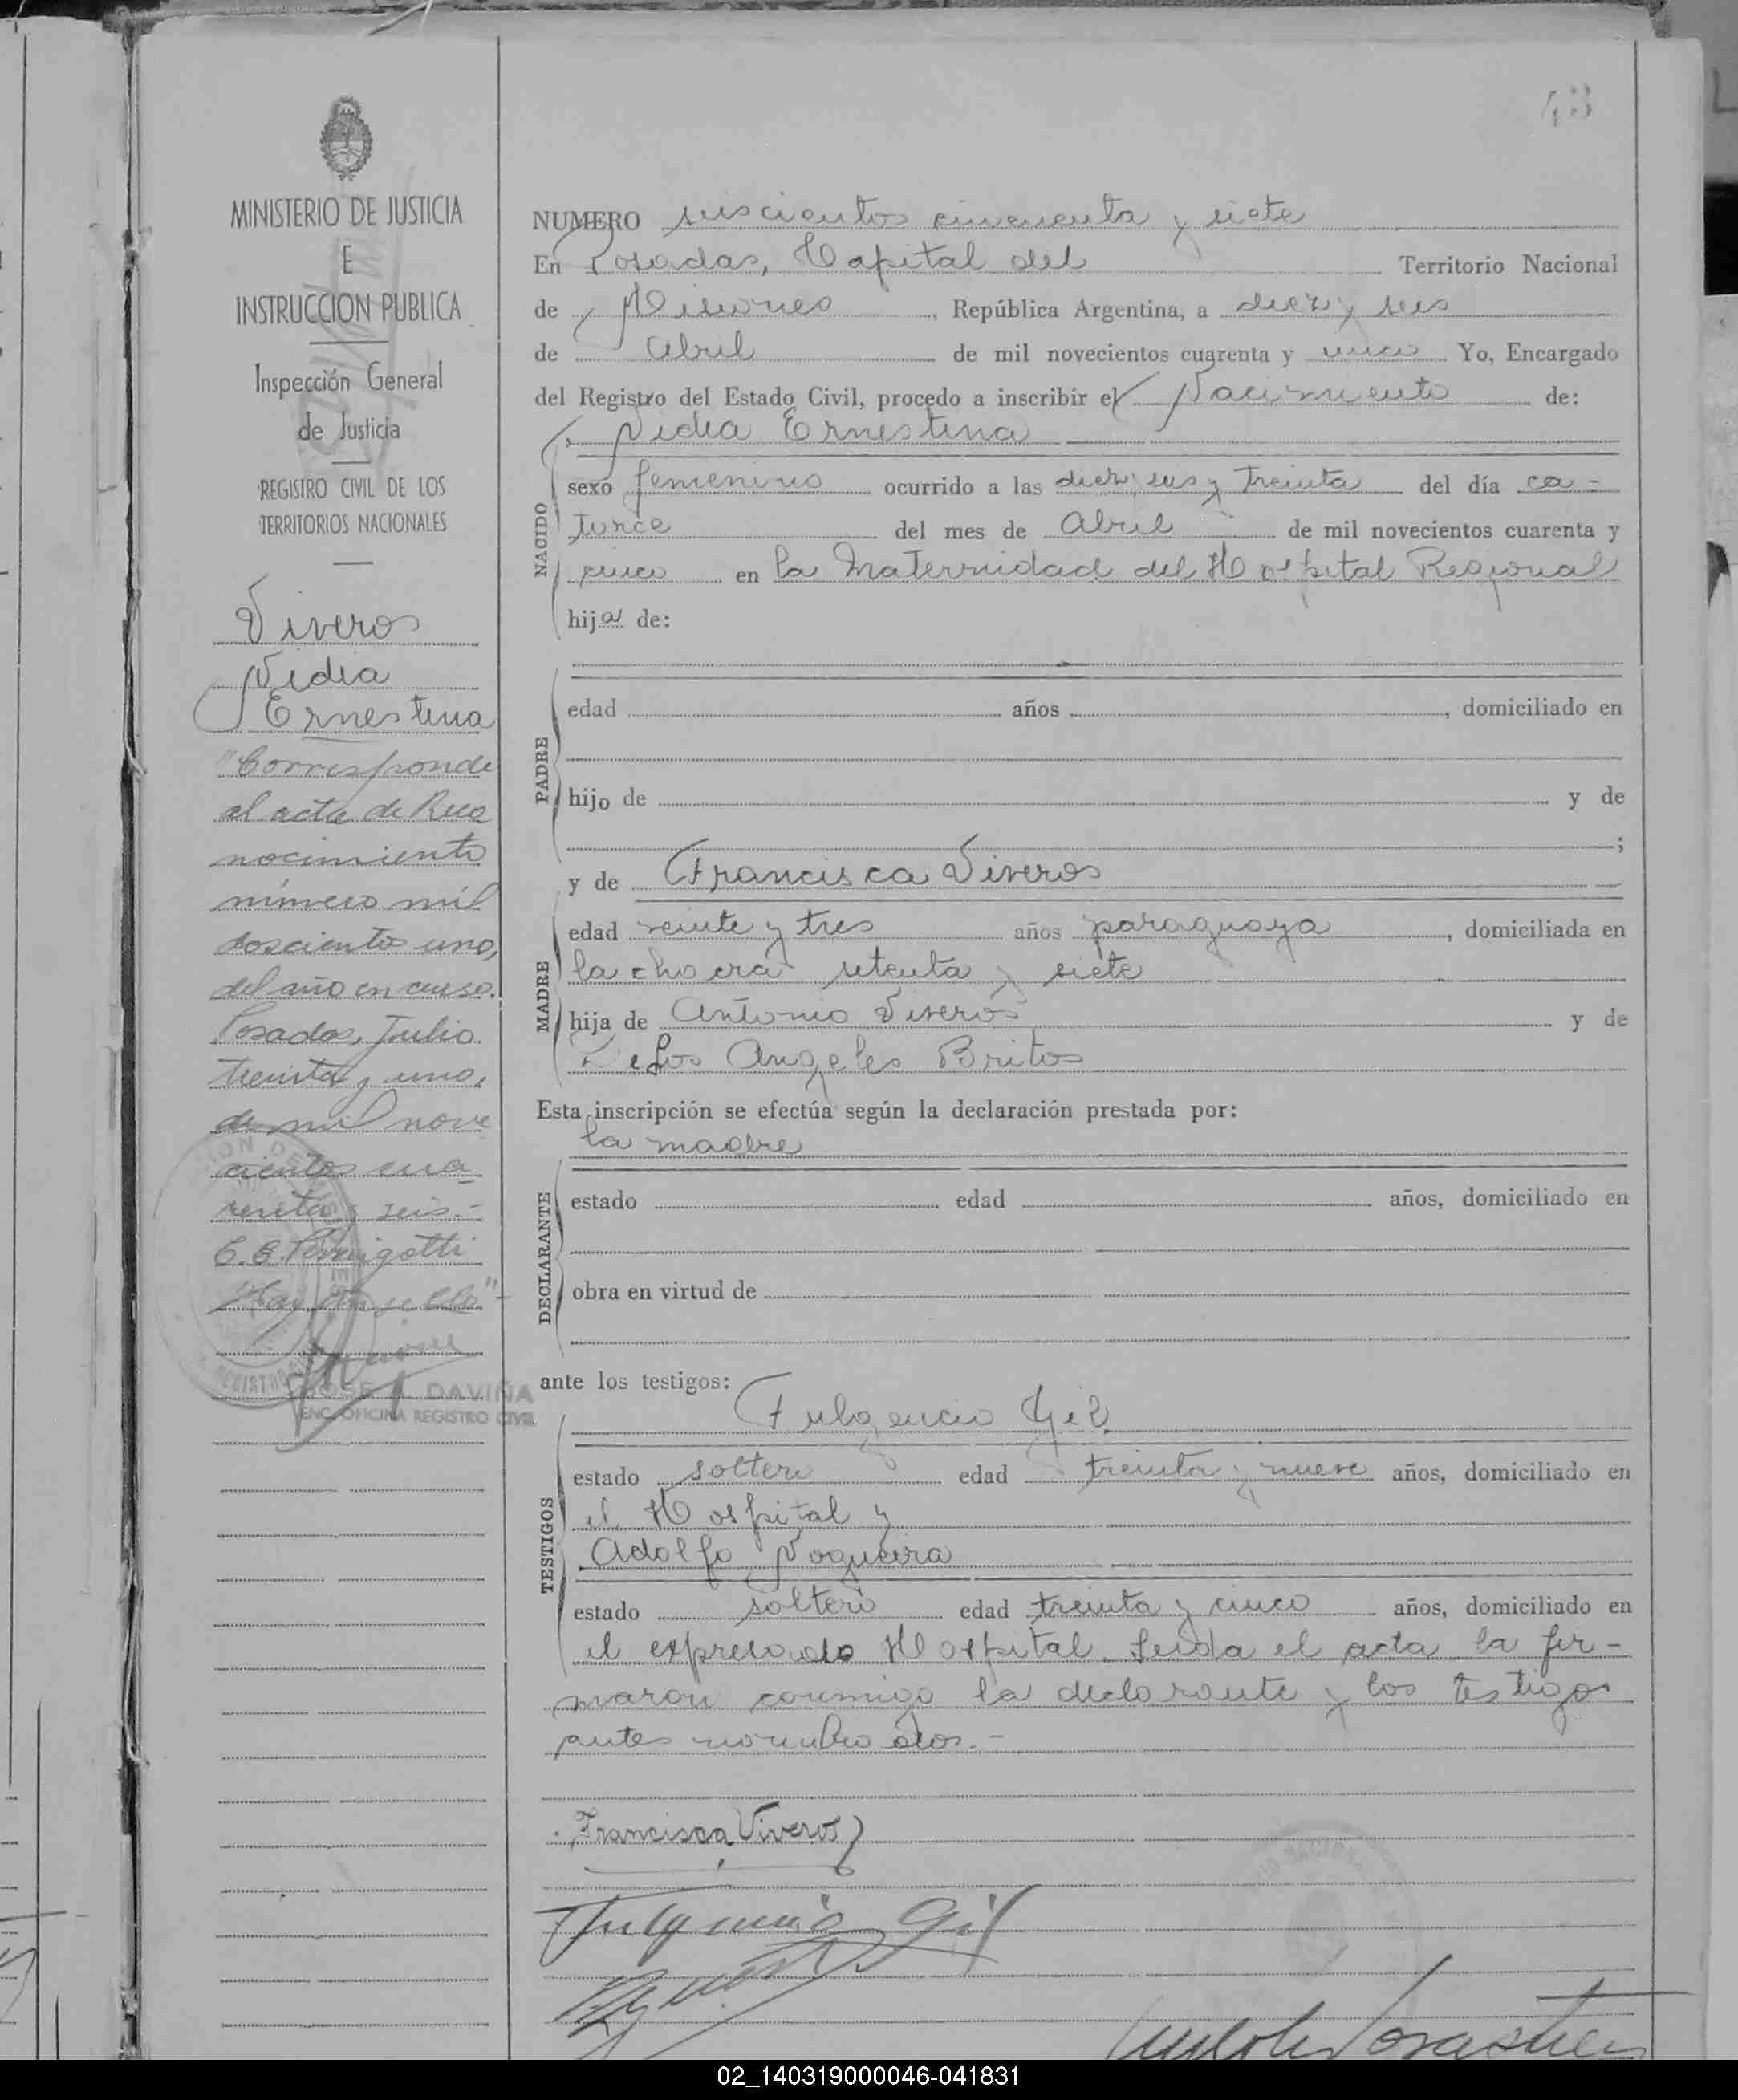 43
MINISTERIO DE JUSTICIA
E
INSTRUCCION PUBLICA
Inspección General
de Justicia
REGISTRO CIVIL DE LOS
TERRITORIOS NACIONALES
Viveros
Nidia
Ernestina
"Corresponde
al acta de Reco
nocimiento
número mil
doscientos uno,
del año en curso.
Posadas, Julio
treinta y uno,
de mil nove
cientos cua
renta y seis.-
C. E. Pernigotti
JOSE DAVIÑA
ENC. OFICINA REGISTRO CIVIL
NUMERO seiscientos cincuenta y siete
En Posadas, Capital del Territorio Nacional
de Misiones, República Argentina, a diez y seis
de Abril de mil novecientos cuarenta y cinco Yo, Encargado
del Registro del Estado Civil, procedo a inscribir el Nacimiento de:
Nidia Ernestina
NACIDO
sexo femenino ocurrido a las diez y seis y treinta del día ca-
torce del mes de Abril de mil novecientos cuarenta y
cinco en la Maternidad del Hospital Regional
hija de:
PADRE
edad años , domiciliado en
hijo de y de
;
y de Francisca Viveros
MADRE
edad veinte y tres años paraguaya, domiciliada en
la chacra setenta y siete
hija de Antonio Viveros y de
De Los Angeles Britos
Esta inscripción se efectúa según la declaración prestada por:
la madre
DECLARANTE
estado edad años, domiciliado en
obra en virtud de
ante los testigos:
Fulgencio Gil
TESTIGOS
estado soltero edad treinta y nueve años, domiciliado en
el Hospital y
Adolfo Nogueira
estado soltero edad treinta y cinco años, domiciliado en
el expresado Hospital. Leida el acta la fir-
maron conmigo la declarante y los testigos
antes nombrados.-
Francisca Viveros
Fulgencio Gil
02_140319000046-041831